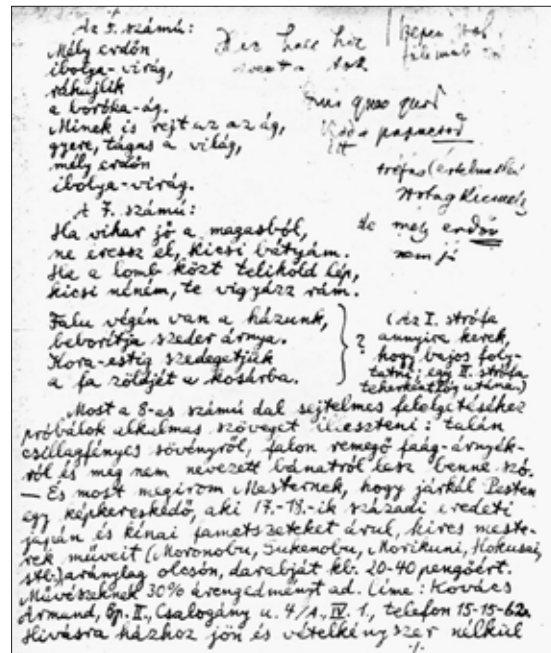 Az 5. számú:
Mély erdőn
ibolya-virág,
ráhujlik
a boróka-ág.
Minek is rejt az az ág,
gyere, tágas a világ,
mély erdőn
ibolya-virág.
A 7. számú:
Ha vihar jő a magasból,
ne eressz el, kicsi bátyám.
Ha a lomb közt telihold lép,
kicsi néném, te vigyázz rám.
Falu végén van a házunk,
beborítja szeder árnya.
Kora-estig szedegetjük
a fa zöldjét a kosárba.
?
(Az I. strófa
annyira kerek,
hogy bajos foly-
tatni; egy II. strófa
teherként lóg utána.)
de mély erdőn
nem jó
Most a 8-as számú dal sejtelmes félelgéséhez
próbálok alkalmas szöveget illeszteni: talán
csillagfényes sövényről, falon remegő faág-árnyék-
ról és meg nem nevezett bánatról lesz benne szó.
— És most megírom Mesternek, hogy járkál Pesten
egy képkereskedő, aki 17.-19.-ik századi eredeti
japán és kínai fametszeteket árul, híres meste-
rek műveit (Moronobu, Sukenobu, Morikuni, Hokusai,
stb.) aránylag olcsón, darabját kb. 20-40 pengőért.
Művészeknek 30% árengedményt ad. Címe: Kovács
Ármand, Bp. II., Csalogány u. 4/A., IV. 1., telefon 15-15-62.
Hívásra házhoz jön és vételkényszer nélkül
./.